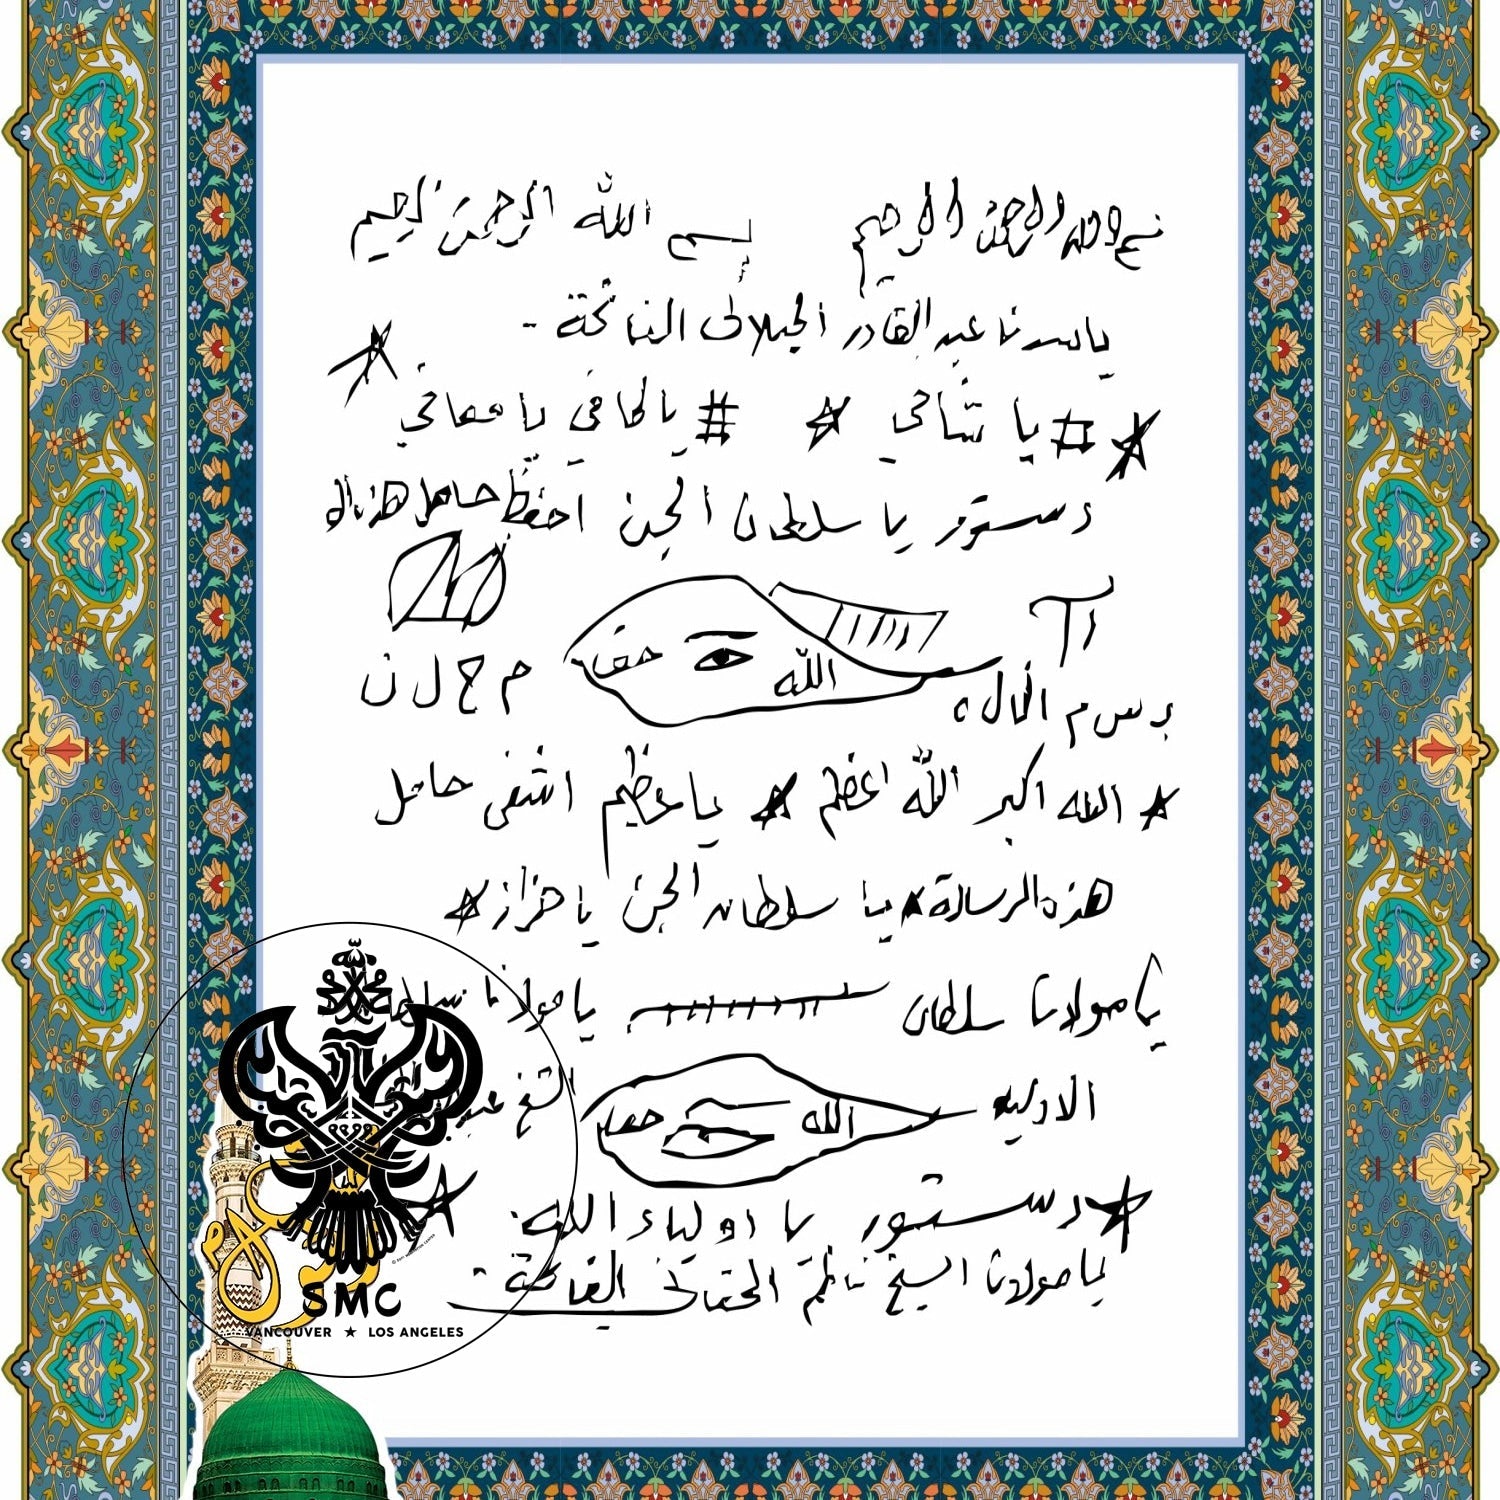 بسم الله الرحمن الرحيم بسم الله الرحمن الرحيم
يا سيدنا عبد القادر الجيلاني الفاتحة -
يا شافي يا كافي يا معافي
دستور يا سلطان الجن احفظ حامل هذه ال
حق الله
ب س م ال ل ه م ح ل ن
الله اكبر الله اعظم يا عظيم اشفي حامل
هذه الرسالة يا سلطان الجن يا
يا مولانا سلطان يا مولانا سلطان
الاوليه الله الشيخ
دستور يا اولياء الله.
يا مولانا الشيخ ناظم الحقاني الفاتحة -
SMC
VANCOUVER ★ LOS ANGELES